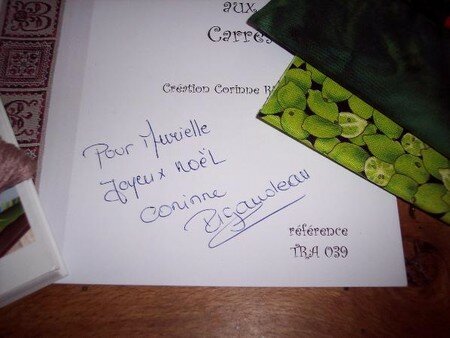 aux
Création Corinne
Pour Murielle
Joyeux NOËL
Corinne
Rigaudeau
référence
TRA 039